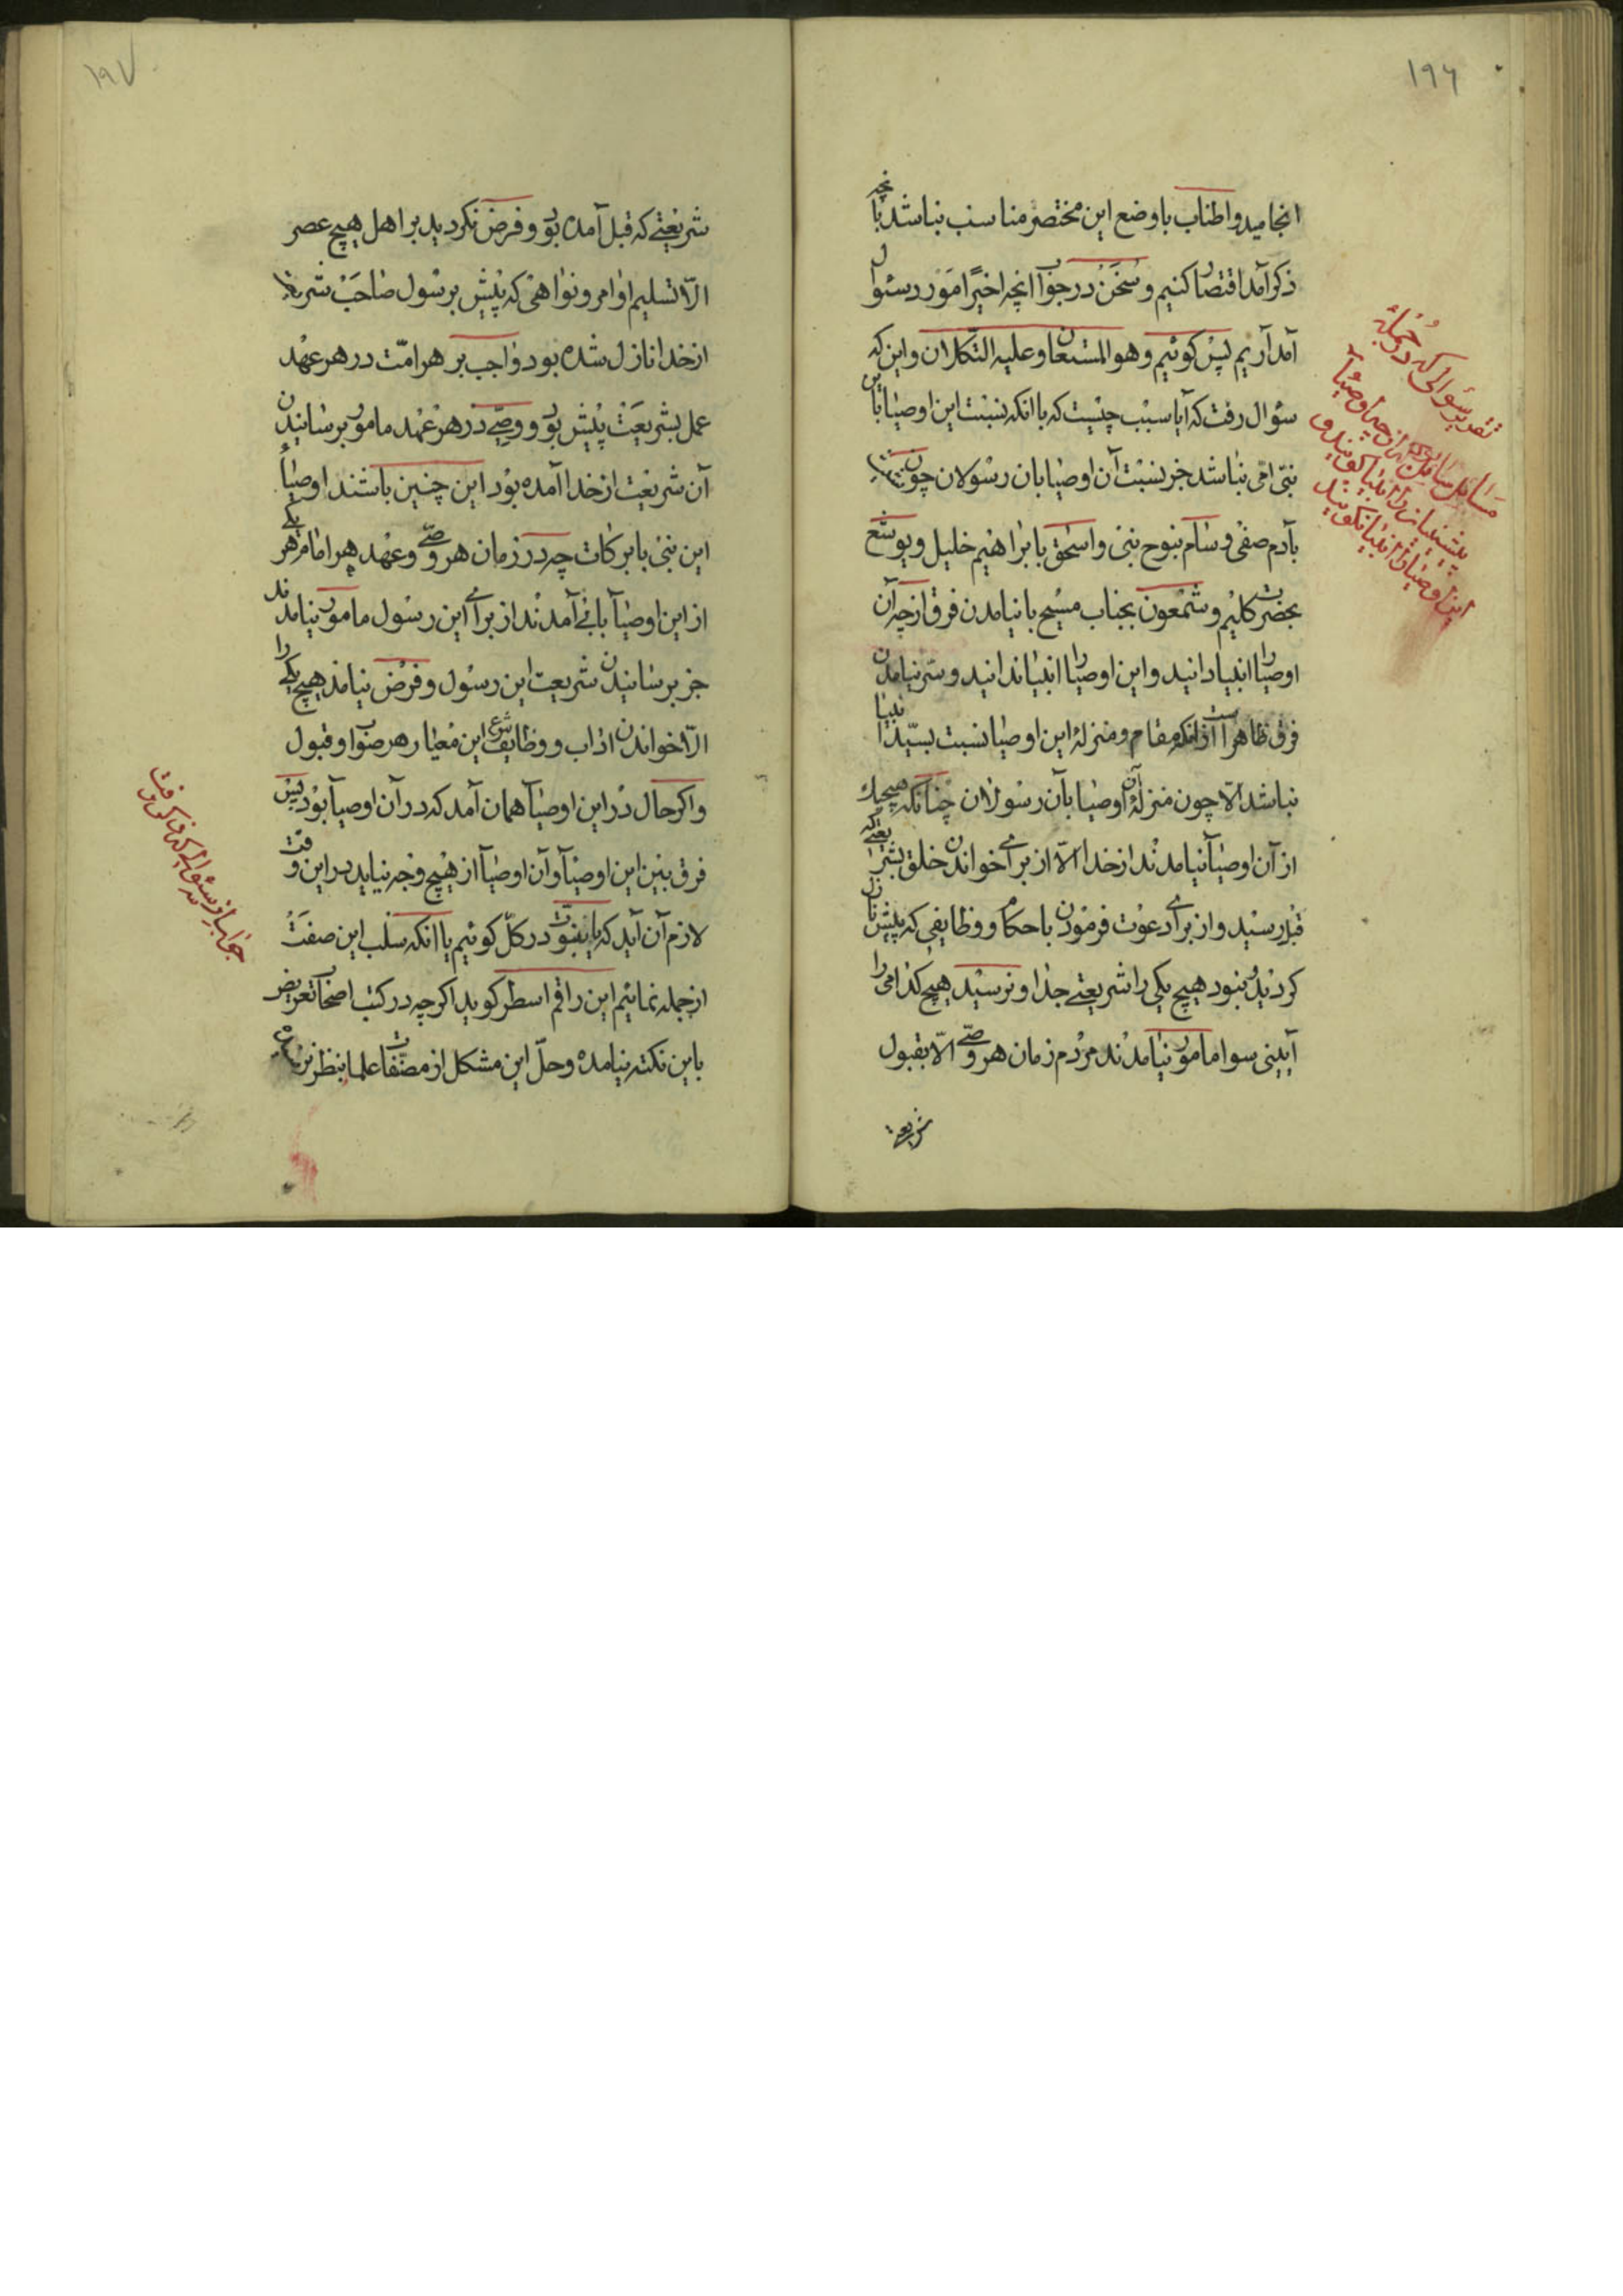 ۱۹۶
انجامید و اطناب با وضع این مختصر مناسب نباشد بآنچه
ذکر آمد اقتصار کنیم و سخن در جواب آنچه اخیرًا مورد سئوال
آمد آریم پس کوئیم و هو المستعان و علیه التکلان و این که
سئوال رفت که آیا سبب چیست که با انکه نسبت این اوصیا باین
نبی امی نباشد جز نسبت آن اوصیا بان رسولان چون
بآدم صفی و سام بنوح نبی و اسحق بابراهیم خلیل و یوشع
بحضرت کلیم و شمعون بجناب مسیح بانیامدن فرق از چه آن
اوصیا را انبیا دانید و این اوصیا را انبیا ندانید و سر نیامدن
فرق ظاهر است از انکه مقام و منزلهٔ این اوصیا نسبت بسید انبیا
نباشد الا چون منزلهٔ آن اوصیا بآن رسولان چنانکه هیچیک
از آن اوصیآ نیامدند از خدا الّا از برای خواندن خلق بشریعتی که
قبل رسید و از برای دعوت فرمودن باحکام و وظایفی که پیش نازل
کردید نبود هیچ یکی را شریعتی جدا و نرسید هیچ کدامی را
آیینی سوا مامور نیامدند مردم زمان هر وصی الّا بقبول
شریعتی
تقدیر سوالی که در جملهٔ
مسایل سائل که از چه اوصیآء
پیشینیان را انبیا کویند و
این اوصیا را انبیا نکویند
۱۹۷
شریعتی که قبل آمده بود و فرض نکردید بر اهل هیچ عصر
الّا تسلیم اوامر و نواهی که پیش بر رسول صاحب شریعت
از خدا نازل شده بود واجب بر هر امّت در هر عهد
عمل بشریعت پیش بود و وصی در هر عهد مامور برسانیدن
آن شریعت از خدا آمده بود این چنین باشند اوصیآء
این نبی با برکات چه در زمان هر وصی و عهد هر امام هر یکی
از این اوصیآ باقی آمدند از برای این رسول مامور نیامدند
جز برسانیدن شریعت این رسول و فرض نیامد هیچ یکی را
الّا خواندن اداب و وظایف شرع این معیار هر صواب و قبول
و اکر حال در این اوصیآ همان آمد که در آن اوصیآ بود پس
فرق بین این اوصیآ و آن اوصیآ از هیچ وجه نیاید در این وقت
لازم آن آید که یا بنبوّت در کلّ کوئیم یا انکه سلب این صفت
از جمله نمائیم این راقم اسطر کوید اکر چه در کتب اصحاب تعریض
باین نکته نیامده و حلّ این مشکل از مصنّفات علما بنظر
جواب از سئوالی که مذکور رفت